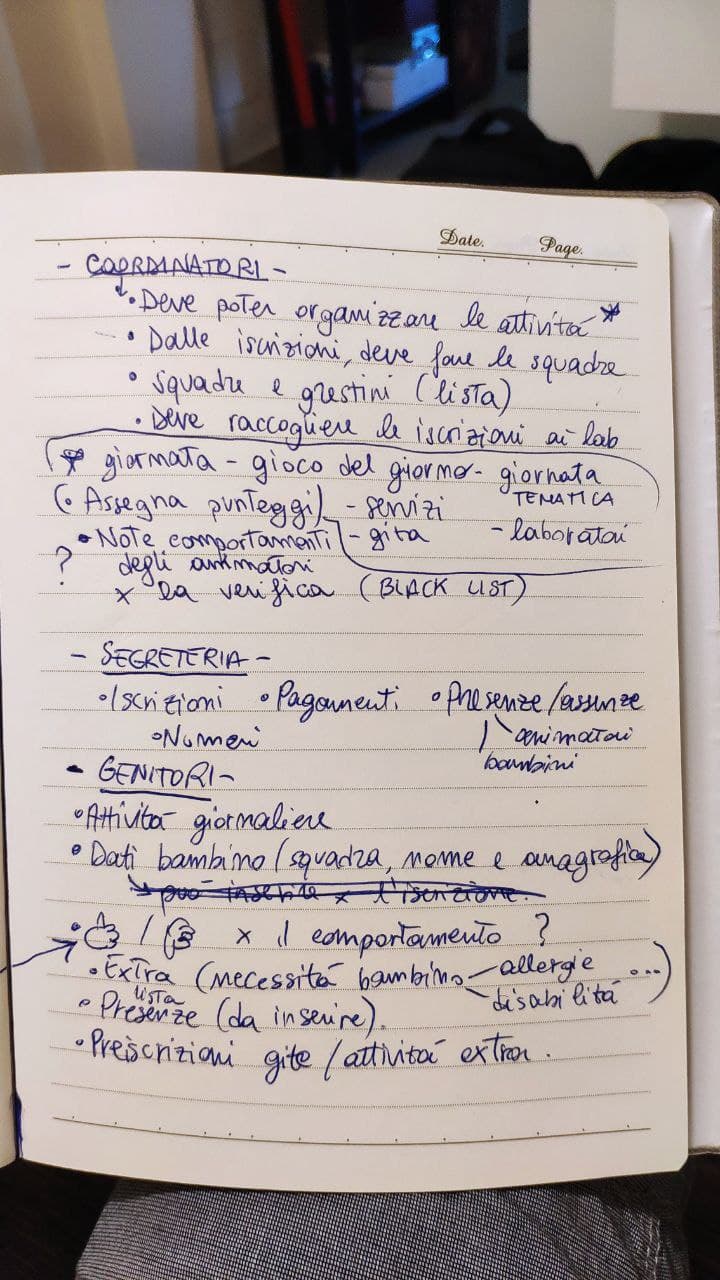 Date. Page.
- COORDINATORI -
• Deve poter organizzare le attività *
• Dalle iscrizioni, deve fare le squadre
• squadre e grestini (lista)
• Deve raccogliere le iscrizioni ai lab
* giornata - gioco del giorno - giornata
TEMATICA
(• Assegna punteggi) - servizi
• Note comportamenti - gita - laboratori
? degli animatori
x la verifica (BLACK LIST)
- SEGRETERIA -
• Iscrizioni • Pagamenti • Presenze/assenze
• Numeri animatori
bambini
- GENITORI -
• Attività giornaliere
• Dati bambino (squadra, nome e anagrafica)
può inserire x l'iscrizione.
• 👍 / 👎 x il comportamento ?
• Extra (necessità bambino - allergie ...)
disabilità
lista
• Presenze (da inserire).
• Preiscrizioni gite / attività extra.